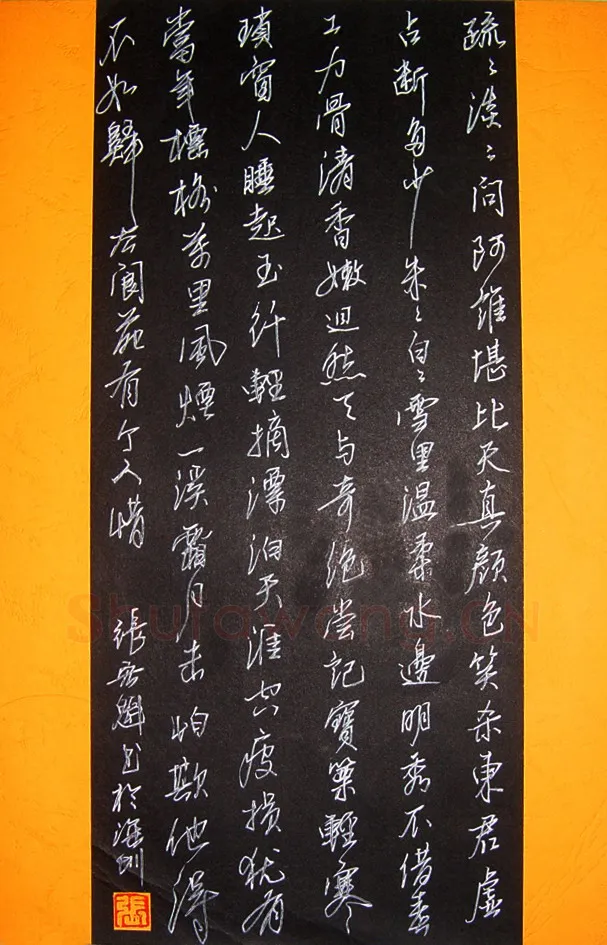 疏〻淡〻问阿誰堪比天真颜色笑杀東君虚
占断多少朱〻白〻雪里温柔水邊明秀不借春
工力骨清香嫩迥然天与奇绝尝记寶篽輕寒
琐窗人睡起玉纤輕摘漂泊天涯空瘦损犹有
當年標格万里風煙一溪霜月未怕欺他得
不如歸去阆苑有个人惜
張魁书於深圳
張
Shufawang.CN